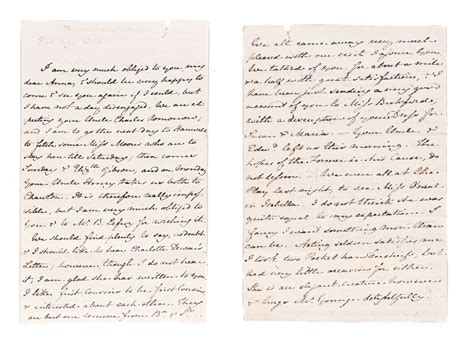 I am very much obliged to you my
dear Anna, & should be very happy to
come & see you again if I could, but
I have not a day disengaged. We are ex
pecting your Uncle Charles tomorrow;
and I am to go the next day to Hanwell
to fetch some Miss Moores who are to
stay here till Saturday; then come
Sunday & Eliz:th Gibson, and on Monday
Your Uncle Henry takes us both to
Chawton. It is therefore really impos-
sible, but I am very much obliged to You
& to Mr B. Lefroy for wishing it.
We should find plenty to say, no doubt
& I should like to hear Charlotte Dewar's
Letter; however, though I do not hear
it, I am glad she has written to you.
I like first Cousins to be first Cousins,
& interested about each other. They
are but one remove from Br & Sr
We all came away very much
pleased with our visit I assure You.
We talked of you for about a mile
& a half with great satisfaction, & I
have been just sending a very good
account of you to Miss Beckford,
with a description of your Dress for
Susan & Maria. Your Uncle &
Edwd left us this morning. The
hopes of the Former in his Cause, do
not lessen. We were all at the
Play last night, to see Miss O'neal
in Isabella. I do not think she was
quite equal to my expectation. I
fancy I want something more than
can be. Acting seldom satisfies me. I
took two Pocket handkerchiefs, but
had very little occasion for either.
She is an elegant creature however
& hugs Mr Younge delightfully.